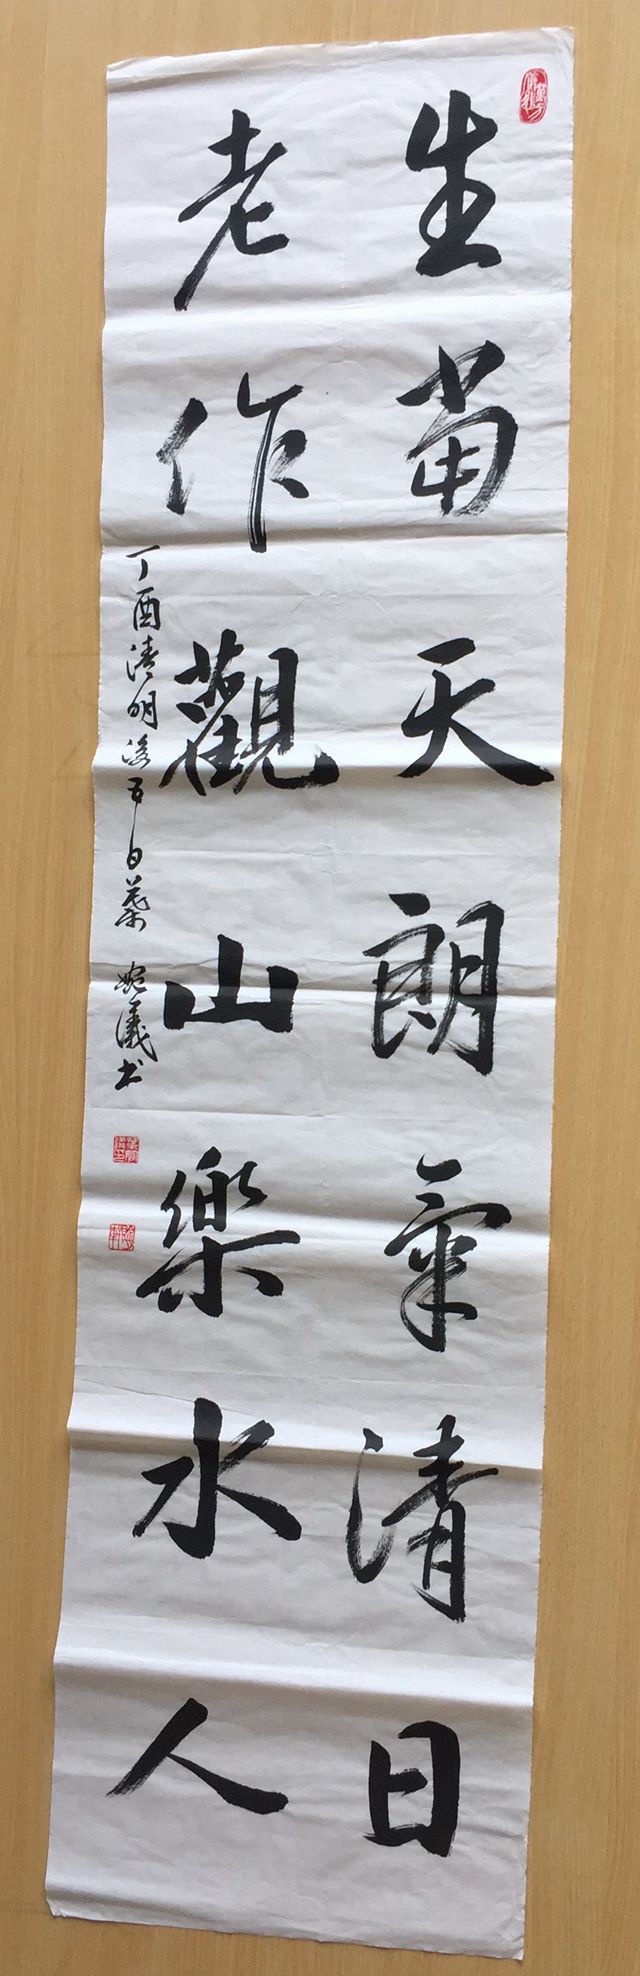 生當天朗氣清日
老作觀山樂水人
丁酉清明後五日葉婉儀书